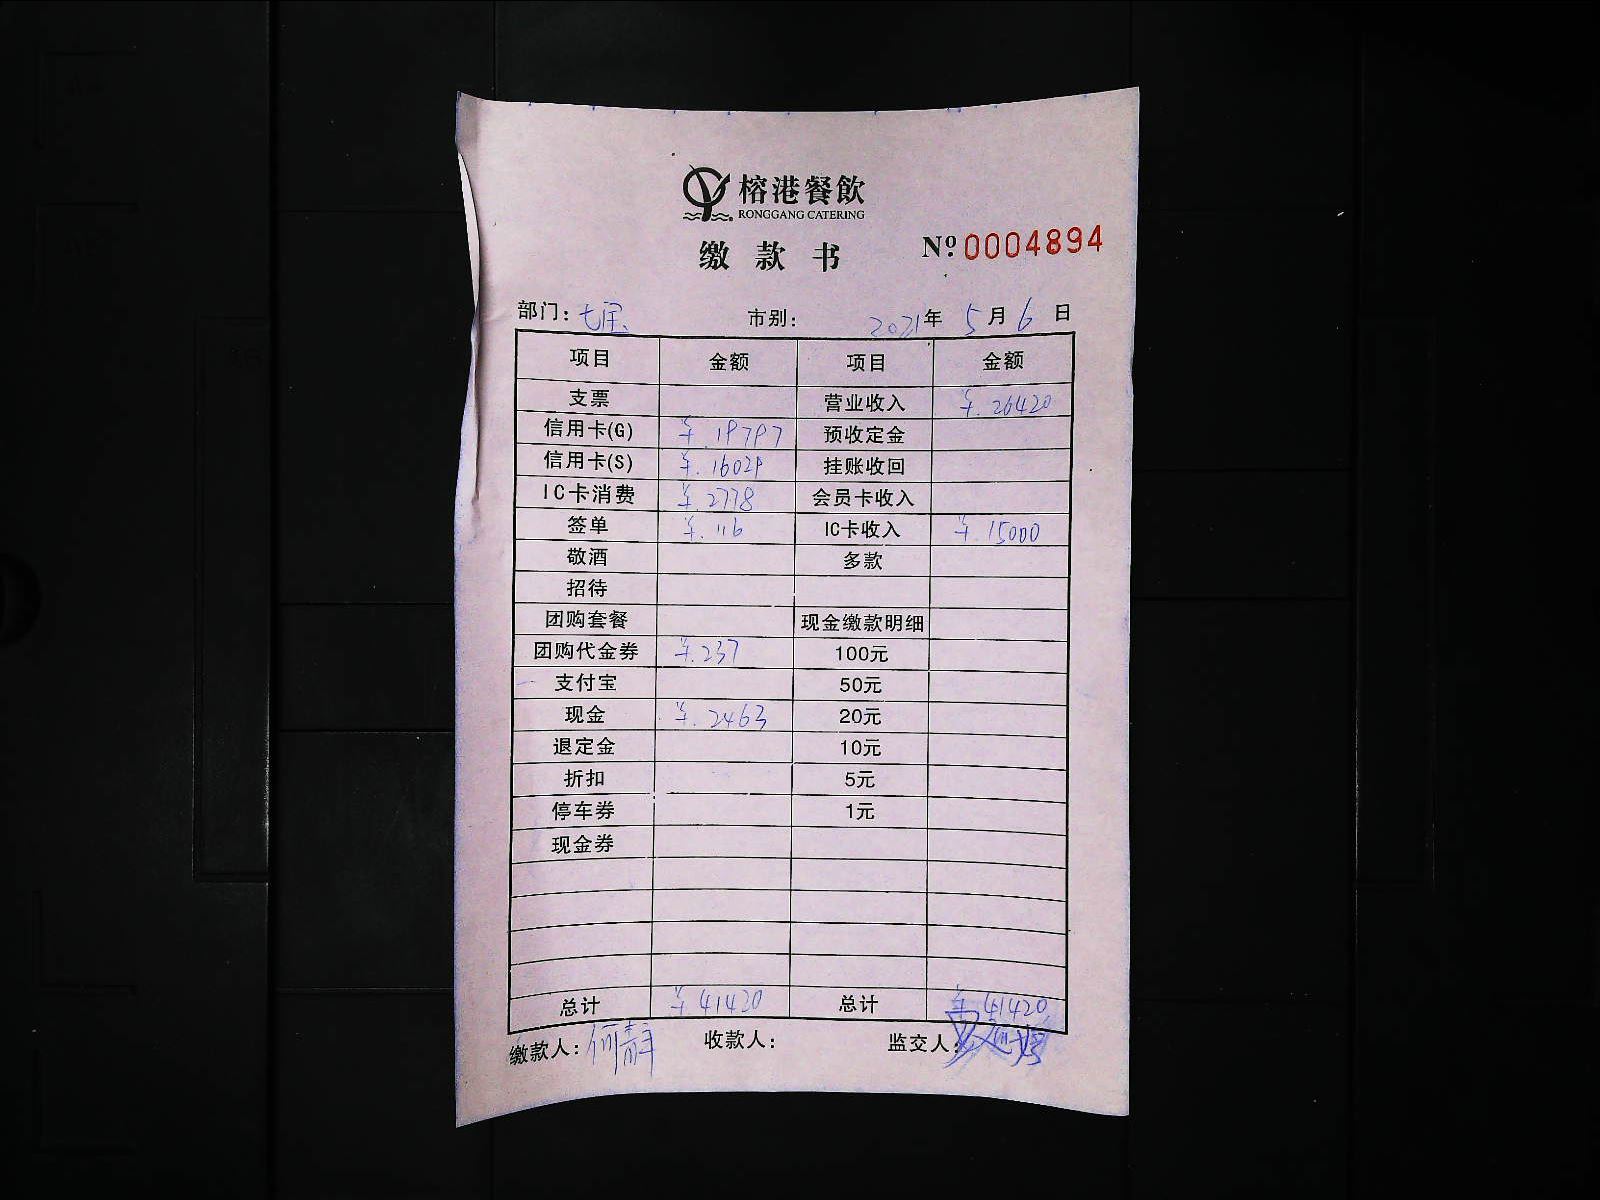 榕港餐飲
RONGGANG CATERING
缴款书 Nº:0004894
部门:七宝 市别: 2021年5月6日
项目 金额 项目 金额
支票 营业收入 ¥.26420
信用卡(G) ¥.19797 预收定金
信用卡(S) ¥.16029 挂账收回
IC卡消费 ¥.2778 会员卡收入
签单 ¥.116 IC卡收入 ¥.15000
敬酒 多款
招待
团购套餐 现金缴款明细
团购代金券 ¥.237 100元
支付宝 50元
现金 ¥.2463 20元
退定金 10元
折扣 5元
停车券 1元
现金券
总计 ¥41420 总计 ¥41420
缴款人:何靜 收款人: 监交人: